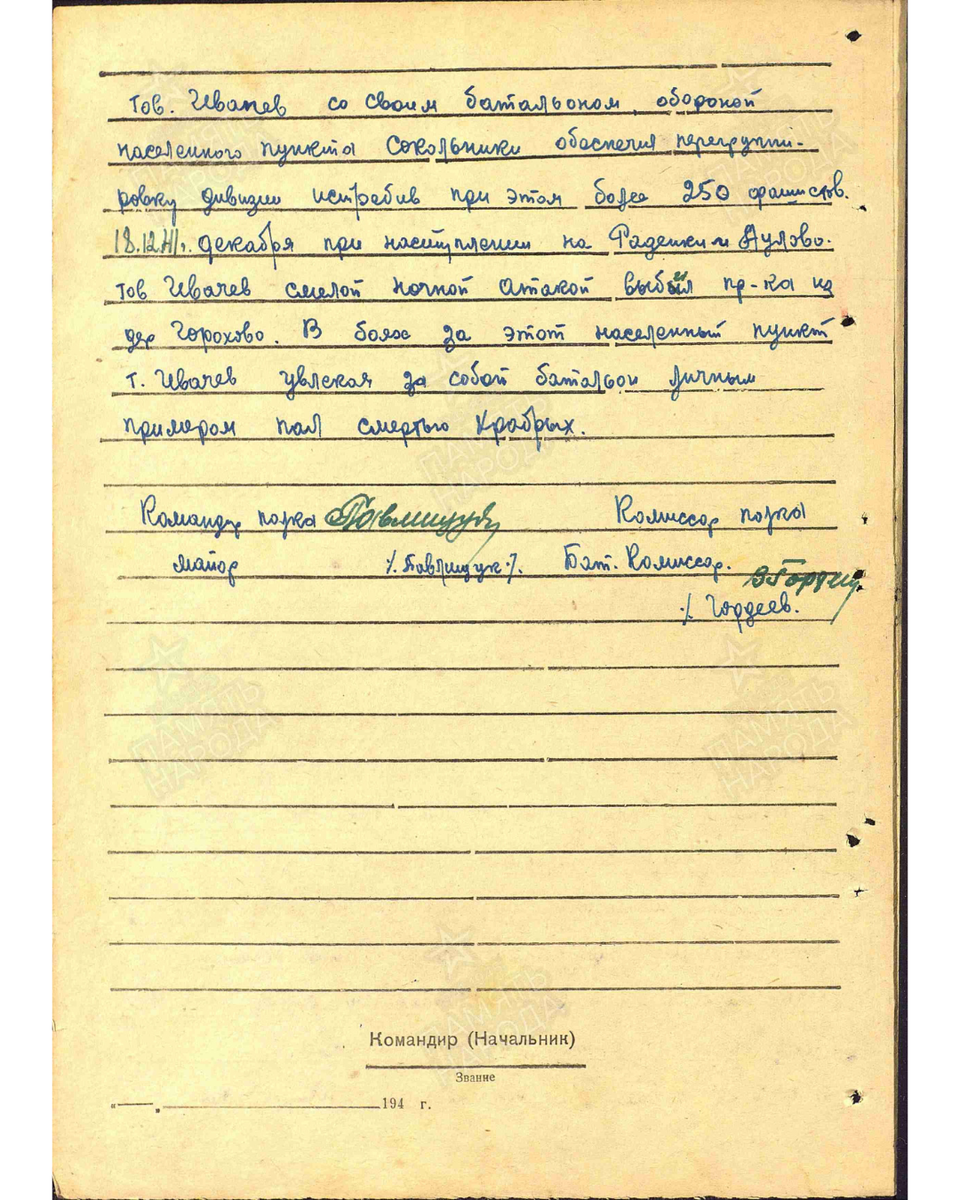 Тов. Ивачев со своим батальоном обороной
населенного пункта Сокольники обеспечил перегруппи-
ровку дивизии истребив при этом более 250 фашистов.
18.12.41г. декабря при наступлении на Раденки и Аулово.
тов Ивачев смелой ночной атакой выбил пр-ка из
дер Горохово. В боях за этот населенный пункт
т. Ивачев увлекая за собой батальон личным
примером пал смертью храбрых.
Командир полка Комиссар полка
майор /. Павлищук ./. Бат. Комиссар.
./. Гордеев.
Командир (Начальник)
Звание
„ “ 194 г.
ПАМЯТЬ
НАРОДА